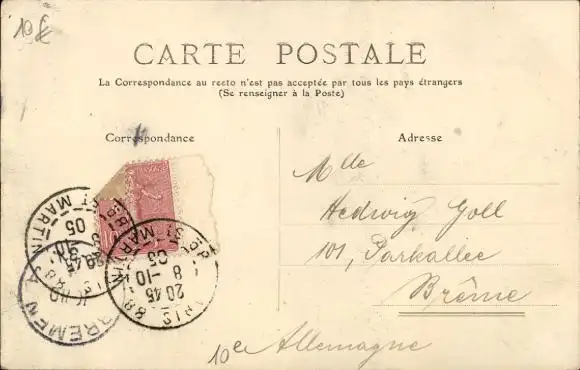 10 €
CARTE POSTALE
La Correspondance au recto n'est pas acceptée par tous les pays étrangers
(Se renseigner à la Poste)
Correspondance
Adresse
Mlle
Hedwig Goll
101, Parkallee
Brême
Allemagne
PARIS 88
ST MARTIN
20 45
8 - 10
05
PARIS 88
ST MARTIN
20 45
8 - 10
05
BREMEN